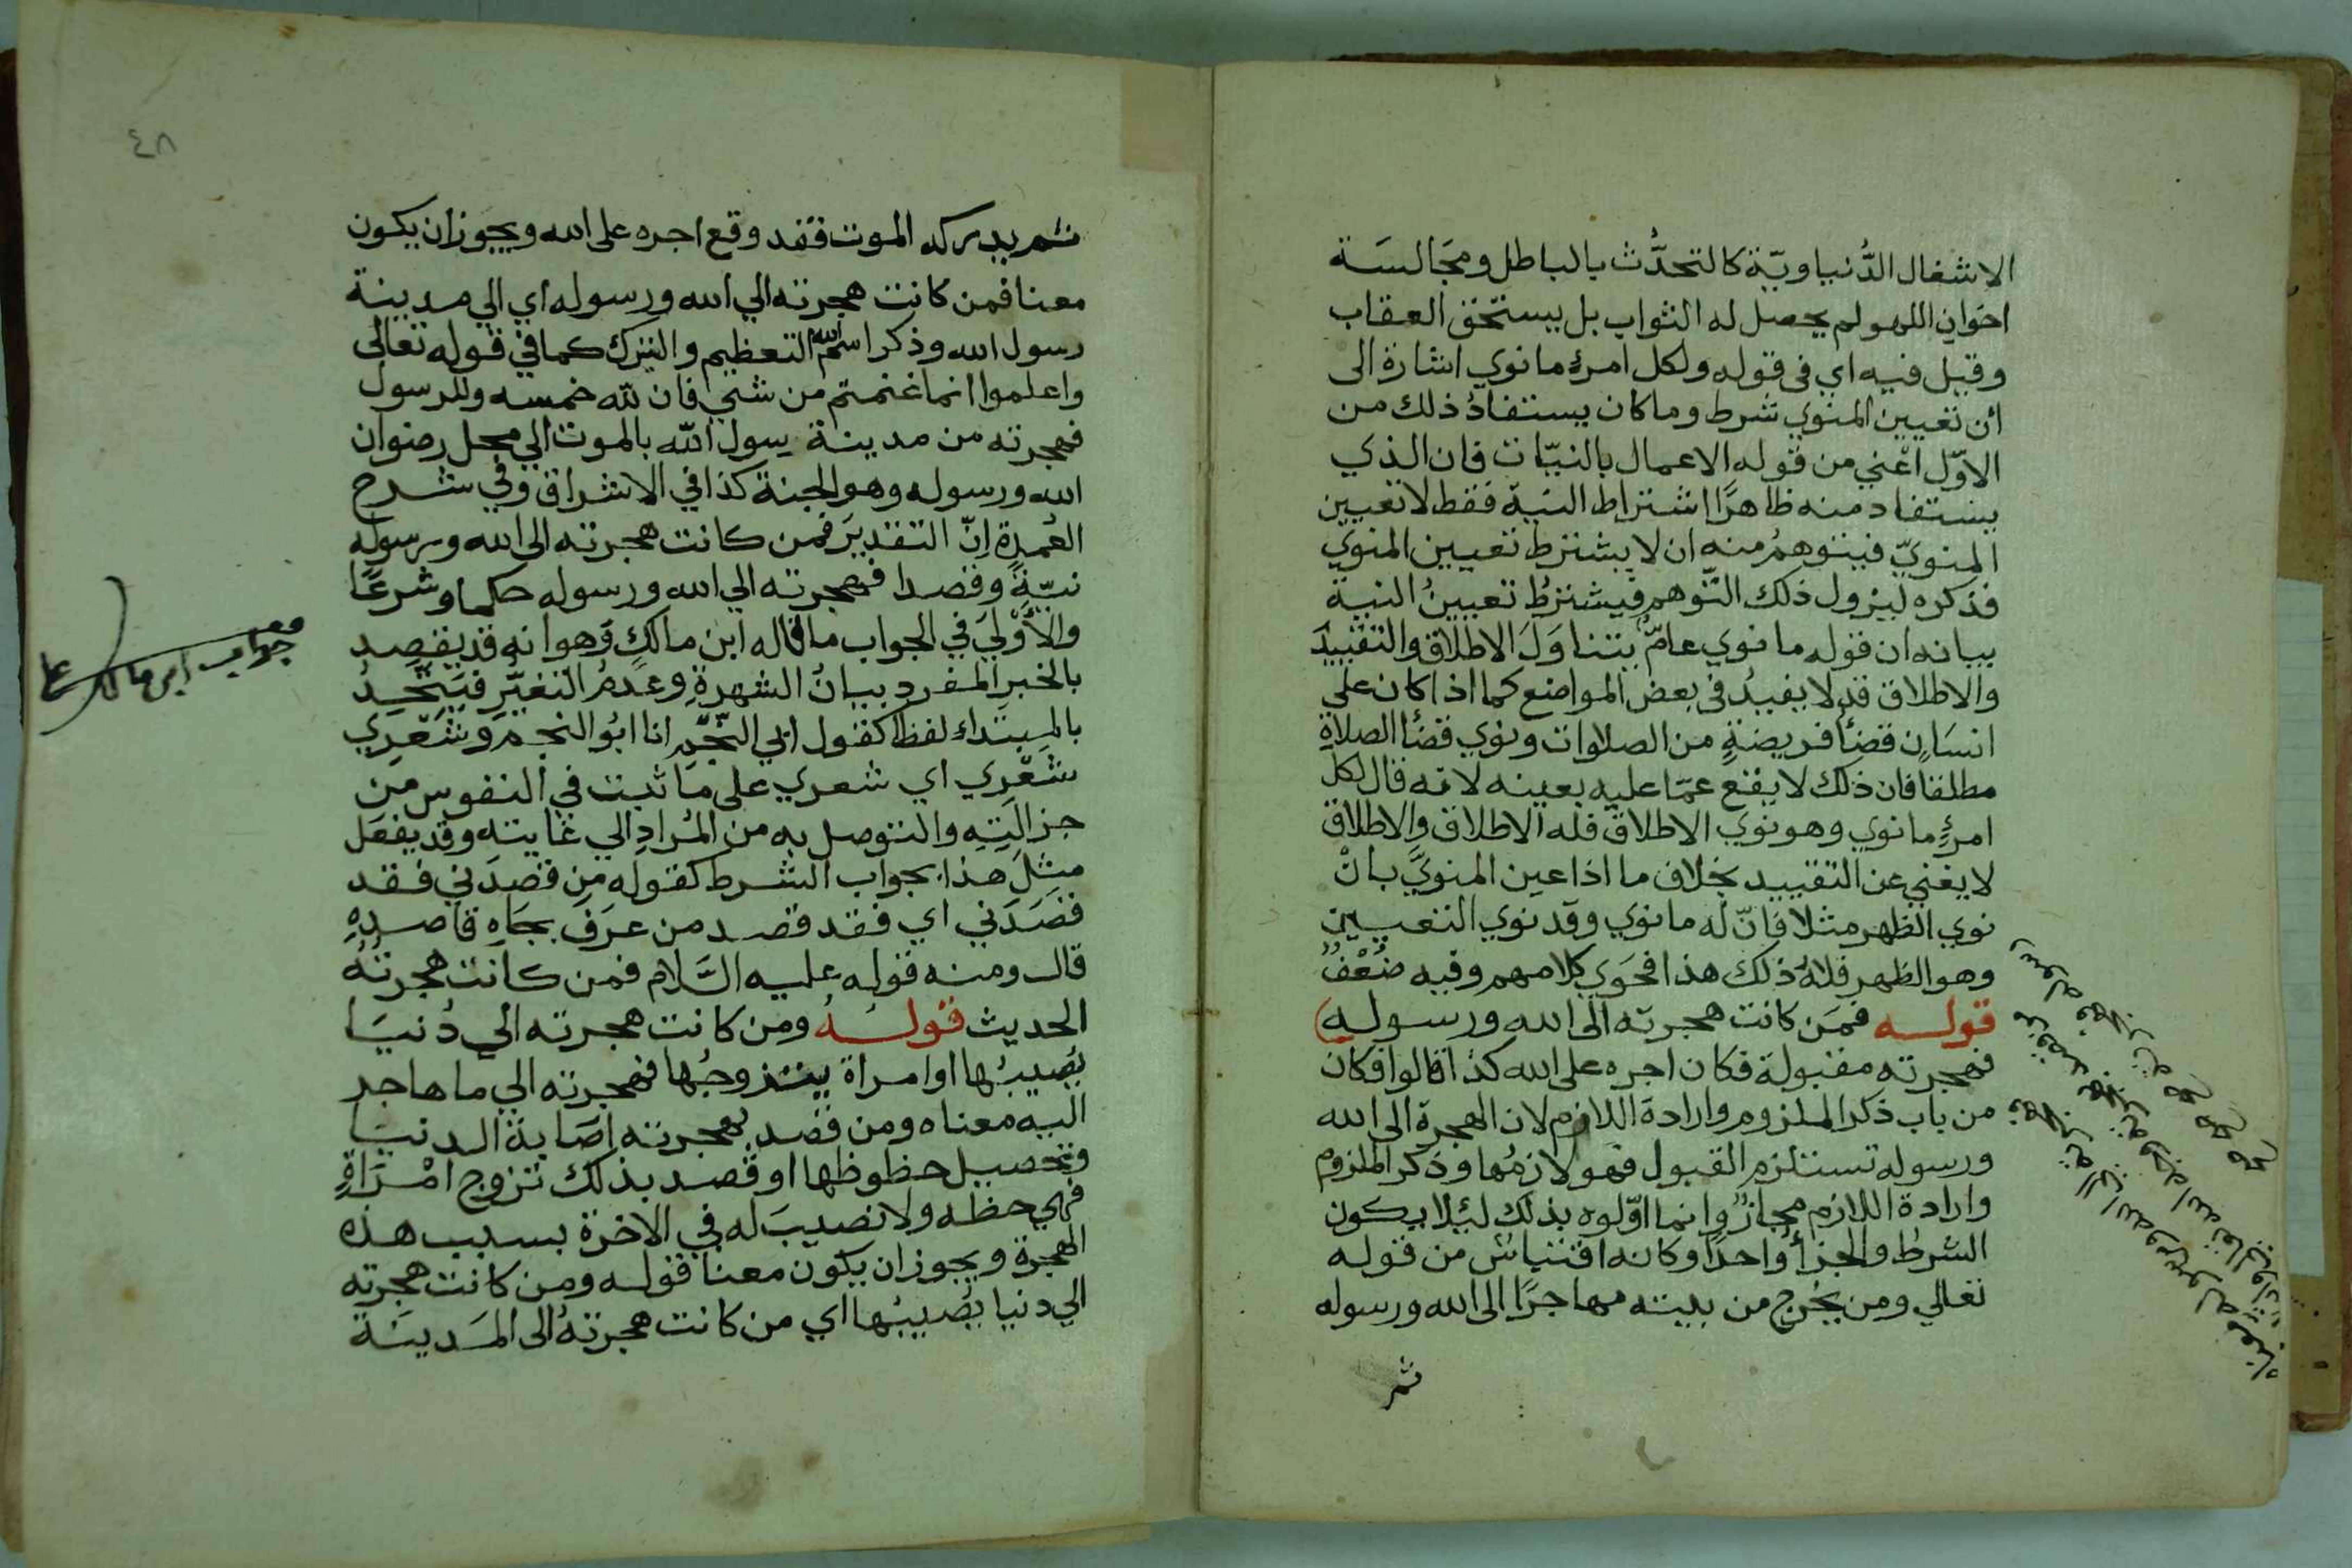 الاشغال الدُّنياويّة كالتحدُّث بالباطل ومجَالسَة
اخوان اللهو لم يحصل له الثواب بل يستحق العقاب
وقيل فيه اي في قوله ولكل امرئ ما نوي اشارة الى
ان تعيين المنوي شرط وما كان يستفادُ ذلك من
الاوّل اعْني من قوله الاعمال بالنيّات فان الذي
يستفاد منه ظاهرًا اشتراط النية فقط لا تعيين
المنويّ فيتوهمُ منه ان لا يشترط تعيين المنوي
فذكره ليزول ذلك التّوهم فيشترطُ تعيينُ النية
بيانه ان قوله ما نوي عامٌّ يتناوَلَ الاطلاق والتقييدَ
والاطلاق قد لا يفيدُ في بعض المواضع كما اذا كان علي
انسَانٍ قضأ فريضةٍ من الصلاوات ونوي قضأ الصلاةِ
مطلقا فان ذلك لا يقع عمّا عليه بعينه لانه قال لكل
امرئٍ ما نوي وهو نوي الاطلاق فله الاطلاق والاطلاق
لا يغني عن التقييد بخلاف ما اذا عين المنويَّ بانْ
نوي الظهر مثلا فانّ له ما نوي وقد نوي التعيين
وهو الظهر فلهُ ذلك هذا فحَوي كلامهم وفيه ضُعْفٌ
قولـــه فمَن كانت هجرته الى الله ورسوله)
فهجرته مقبولة فكان اجره على الله كذا قالوا فكان
من باب ذكر الملزوم وارادة اللازم لان الهجرة الى الله
ورسوله تستلزم القبول فهو لازمُها وذكر الملزوم
وارادة اللازم مجازٌ وانما اوّلوه بذلك ليئلا يكون
الشرطُ والجزأ واحدًا وكانه اقتباسٌ من قوله
تعالي ومن يخرج من بيته مهاجرًا الى الله ورسوله
ثم
٤٨
ثم يدركه الموت فقد وقع اجره على الله ويجوز ان يكون
معنا فمن كانت هجرته الي الله ورسوله اي الي مدينة
رسول الله وذكر اسم الله للتعظيم والتبرك كما في قوله تعالى
واعلموا انما غنمتم من شئ فان لله خمسه وللرسول
فهجرته من مدينة رسول الله بالموت الي محل رضوان
الله ورسوله وهو الجنة كذا في الاشراق وفي شرح
العُمدة إنّ التقديرَ فمن كانت هجرته الى الله ورسوله
نيّةً وقصدا فهجرته الي الله ورسوله حكما وشرعًا
والأوْلَي في الجواب ما قاله ابن مالكٍ وَهوانه قد يقصد
بالخبر المفرد بيانُ الشهرةِ وعدمُ التغيّرِ فيتّحدُ
بالمبتداء لفظا كقول ابي النّجم انا ابُو النجم وشعْري
شعْري اي شعري على ما ثبت في النفوس من
جزالتِه والتوصل به من المُرادِ الي غايته وقد يفعَل
مثلَ هذا بجواب الشرط كقوله من قصدَني فقد
قصَدَني اي فقد قصد من عرَف بجَاه قاصدهِ
قال ومنه قوله عليه السَّلام فمن كانت هجرتُهُ
الحديث قولــهُ ومن كانت هجرته الي دُنيَا
يُصيبُها او امراة يتزوجُها فهجرته الي ما هاجر
اليه معناه ومن قصد بهجرته اصَابة الدنيَا
وتحصيل حظوظها او قصد بذلك تزوج امْرَاةٍ
فهي حظه ولا نصيبَ له في الاخرة بسبب هذه
الهجرة ويجوز ان يكون معنا قوله ومن كانت هجرته
الي دنيا يُصيبُها اي من كانت هجرتهُ الى المَدينَة
جواب ابن مالك